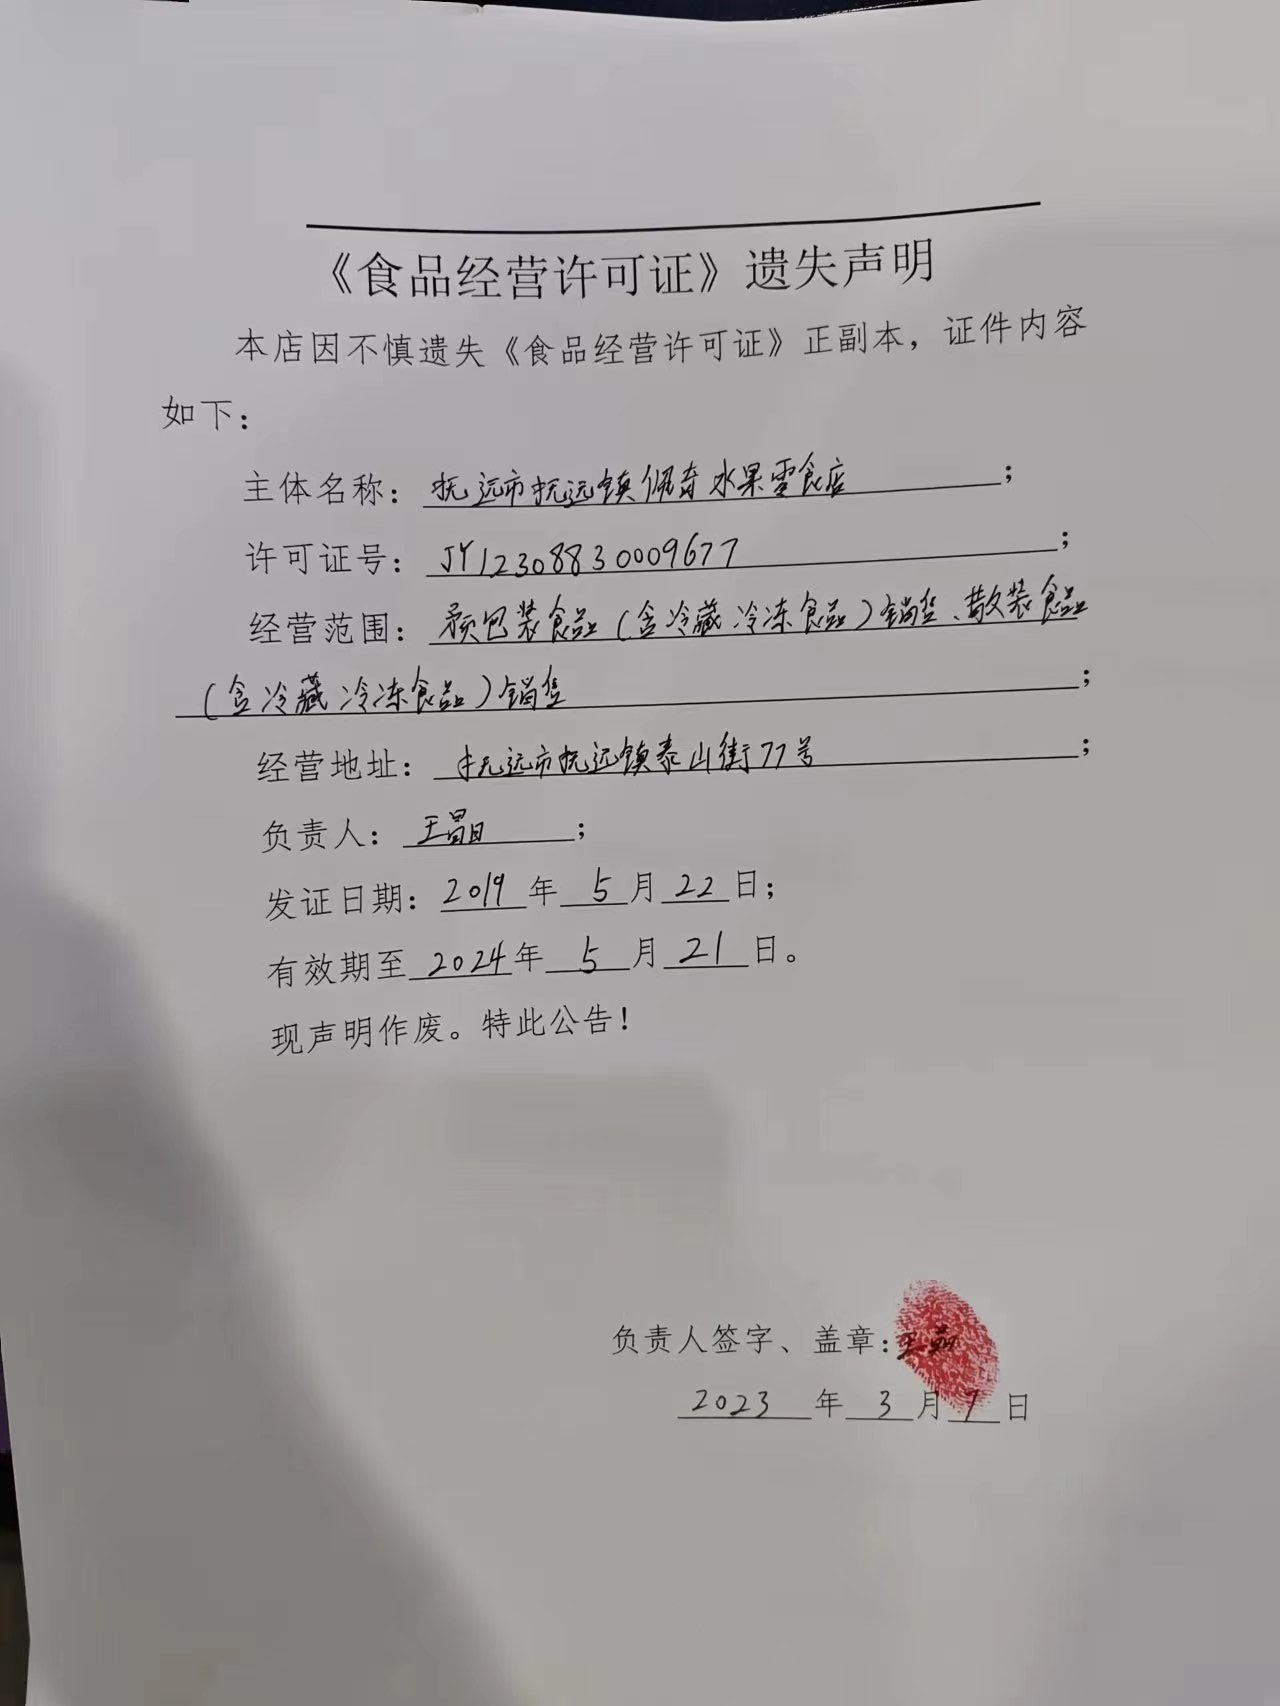 《食品经营许可证》遗失声明
本店因不慎遗失《食品经营许可证》正副本，证件内容
如下：
主体名称：抚远市抚远镇佩奇水果零食店；
许可证号：JY12308830009677；
经营范围：预包装食品（含冷藏冷冻食品）销售、散装食品
（含冷藏冷冻食品）销售；
经营地址：抚远市抚远镇泰山街77号；
负责人：王晶；
发证日期：2019年5月22日；
有效期至2024年5月21日。
现声明作废。特此公告！
负责人签字、盖章：王
2023年3月7日